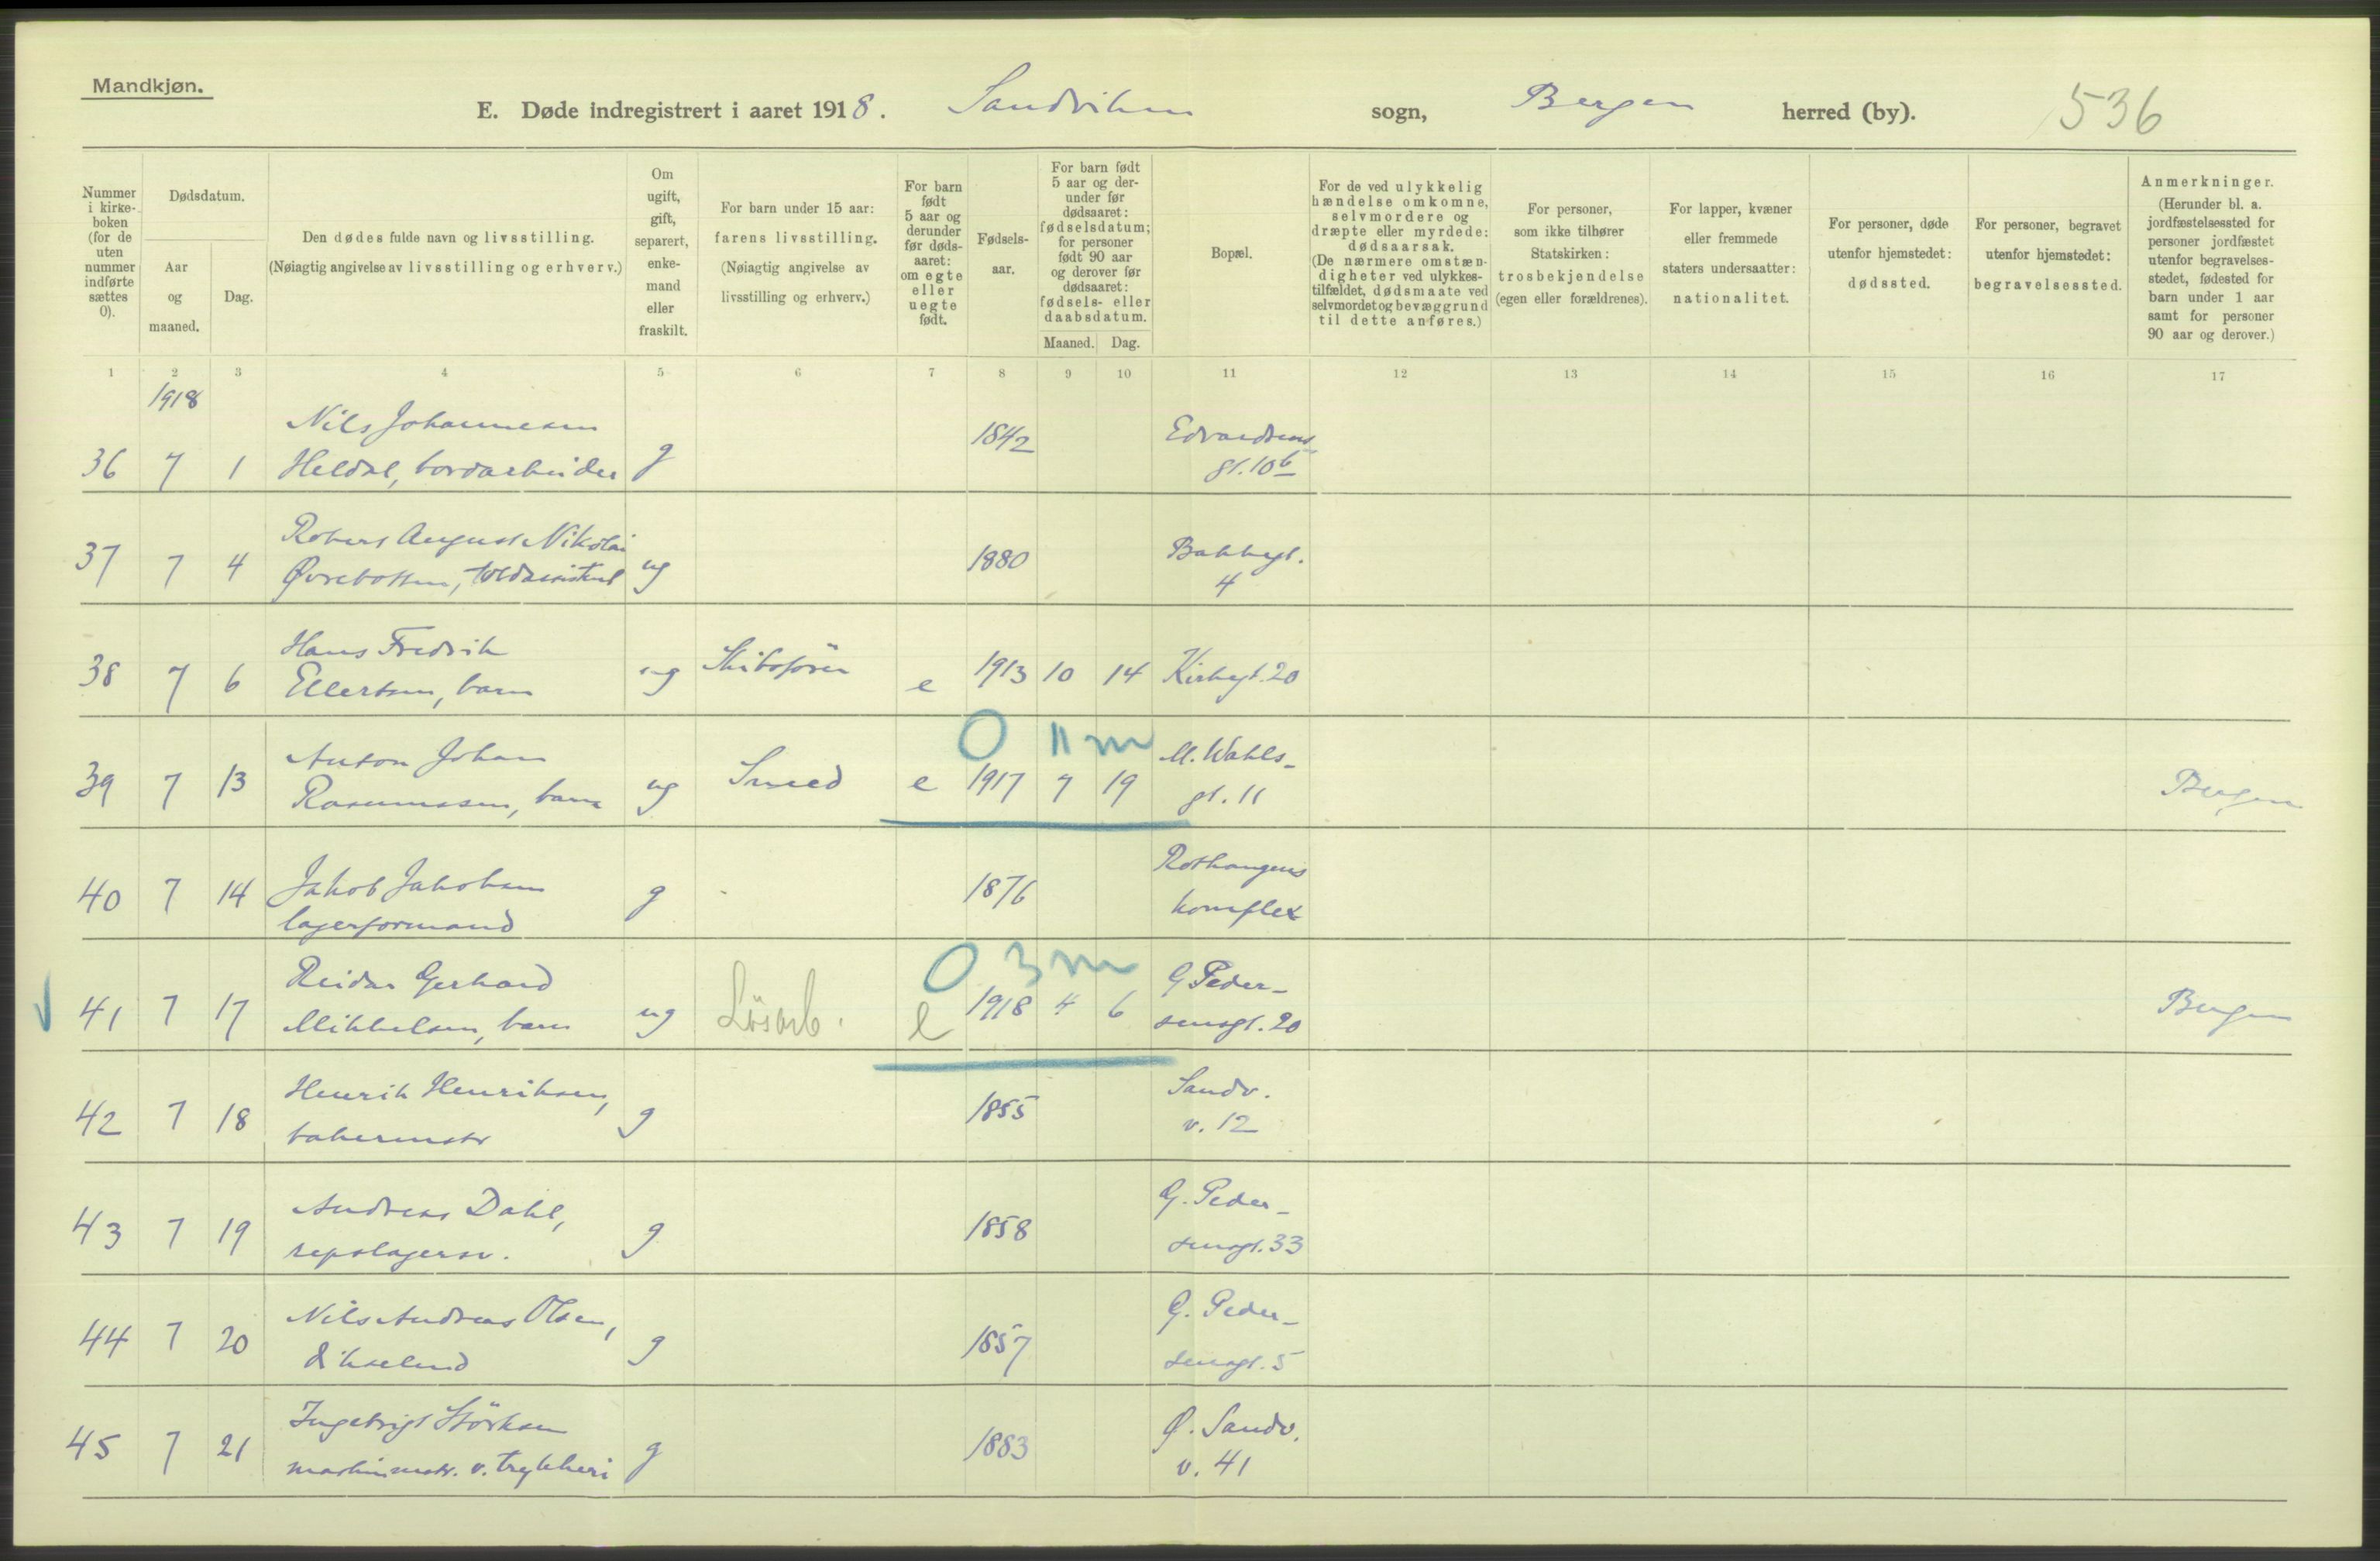 Mandkjøn.
E. Døde indregistrert i aaret 1918. Sandviken sogn, Bergen herred (by). 536
Nummer i kirkeboken (for de uten nummer indførte sættes 0).
Dødsdatum.
Aar og maaned.
Dag.
Den dødes fulde navn og livsstilling.
(Nøiagtig angivelse av livsstilling og erhverv.)
Om ugift, gift, separert, enkemand eller fraskilt.
For barn under 15 aar:
farens livsstilling.
(Nøiagtig angivelse av livsstilling og erhverv.)
For barn født 5 aar og derunder før dødsaaret: om egte eller uegte født.
Fødselsaar.
For barn født 5 aar og derunder før dødsaaret: fødselsdatum; for personer født 90 aar og derover før dødsaaret: fødsels- eller daabsdatum.
Maaned. Dag.
Bopæl.
For de ved ulykkelig hændelse omkomne, selvmordere og dræpte eller myrdede: dødsaarsak.
(De nærmere omstændigheter ved ulykkestilfældet, dødsmaate ved selvmordet og bevæggrund til dette anføres.)
For personer, som ikke tilhører Statskirken: trosbekjendelse (egen eller forældrenes).
For lapper, kvæner eller fremmede staters undersaatter: nationalitet.
For personer, døde utenfor hjemstedet: dødssted.
For personer, begravet utenfor hjemstedet: begravelsessted.
Anmerkninger.
(Herunder bl. a. jordfæstelsessted for personer jordfæstet utenfor begravelsesstedet, fødested for barn under 1 aar samt for personer 90 aar og derover.)
1 2 3 4 5 6 7 8 9 10 11 12 13 14 15 16 17
1918
Nils Johannesen 1842 Edvardsens
36 7 1 Heldal, bordarbeider g gt. 10b
Robert August Nikolai
37 7 4 Øvrebotten, toldassistent ug 1880 Bakkegt. 4
Hans Fredrik
38 7 6 Ellertsen, barn ug Skibsfører e 1913 10 14 Kirkegt. 20
0 11 m
Anton Johan M. Wahls-
39 7 13 Rasmussen, barn ug Smed e 1917 7 19 gt. 11 Bergen
Rothaugens
40 7 14 Jakob Jakobsen g 1876 komplex
lagerformand
0 3 m
Reidar Gerhard G Peder-
41 7 17 Mikkelsen, barn ug Lösarb. e 1918 4 6 sensgt. 20 Bergen
Henrik Henriksen, Sandv.
42 7 18 bakermstr g 1855 v. 12
Andreas Dahl, G. Peder-
43 7 19 repslagersv. g 1858 sensgt. 33
Nils Andreas Olsen, G. Peder-
44 7 20 g 1857 sensgt. 5
Ingebrigt Störksen Ø. Sandv.
45 7 21 maskinmstr. v. trykkeri g 1883 v. 41